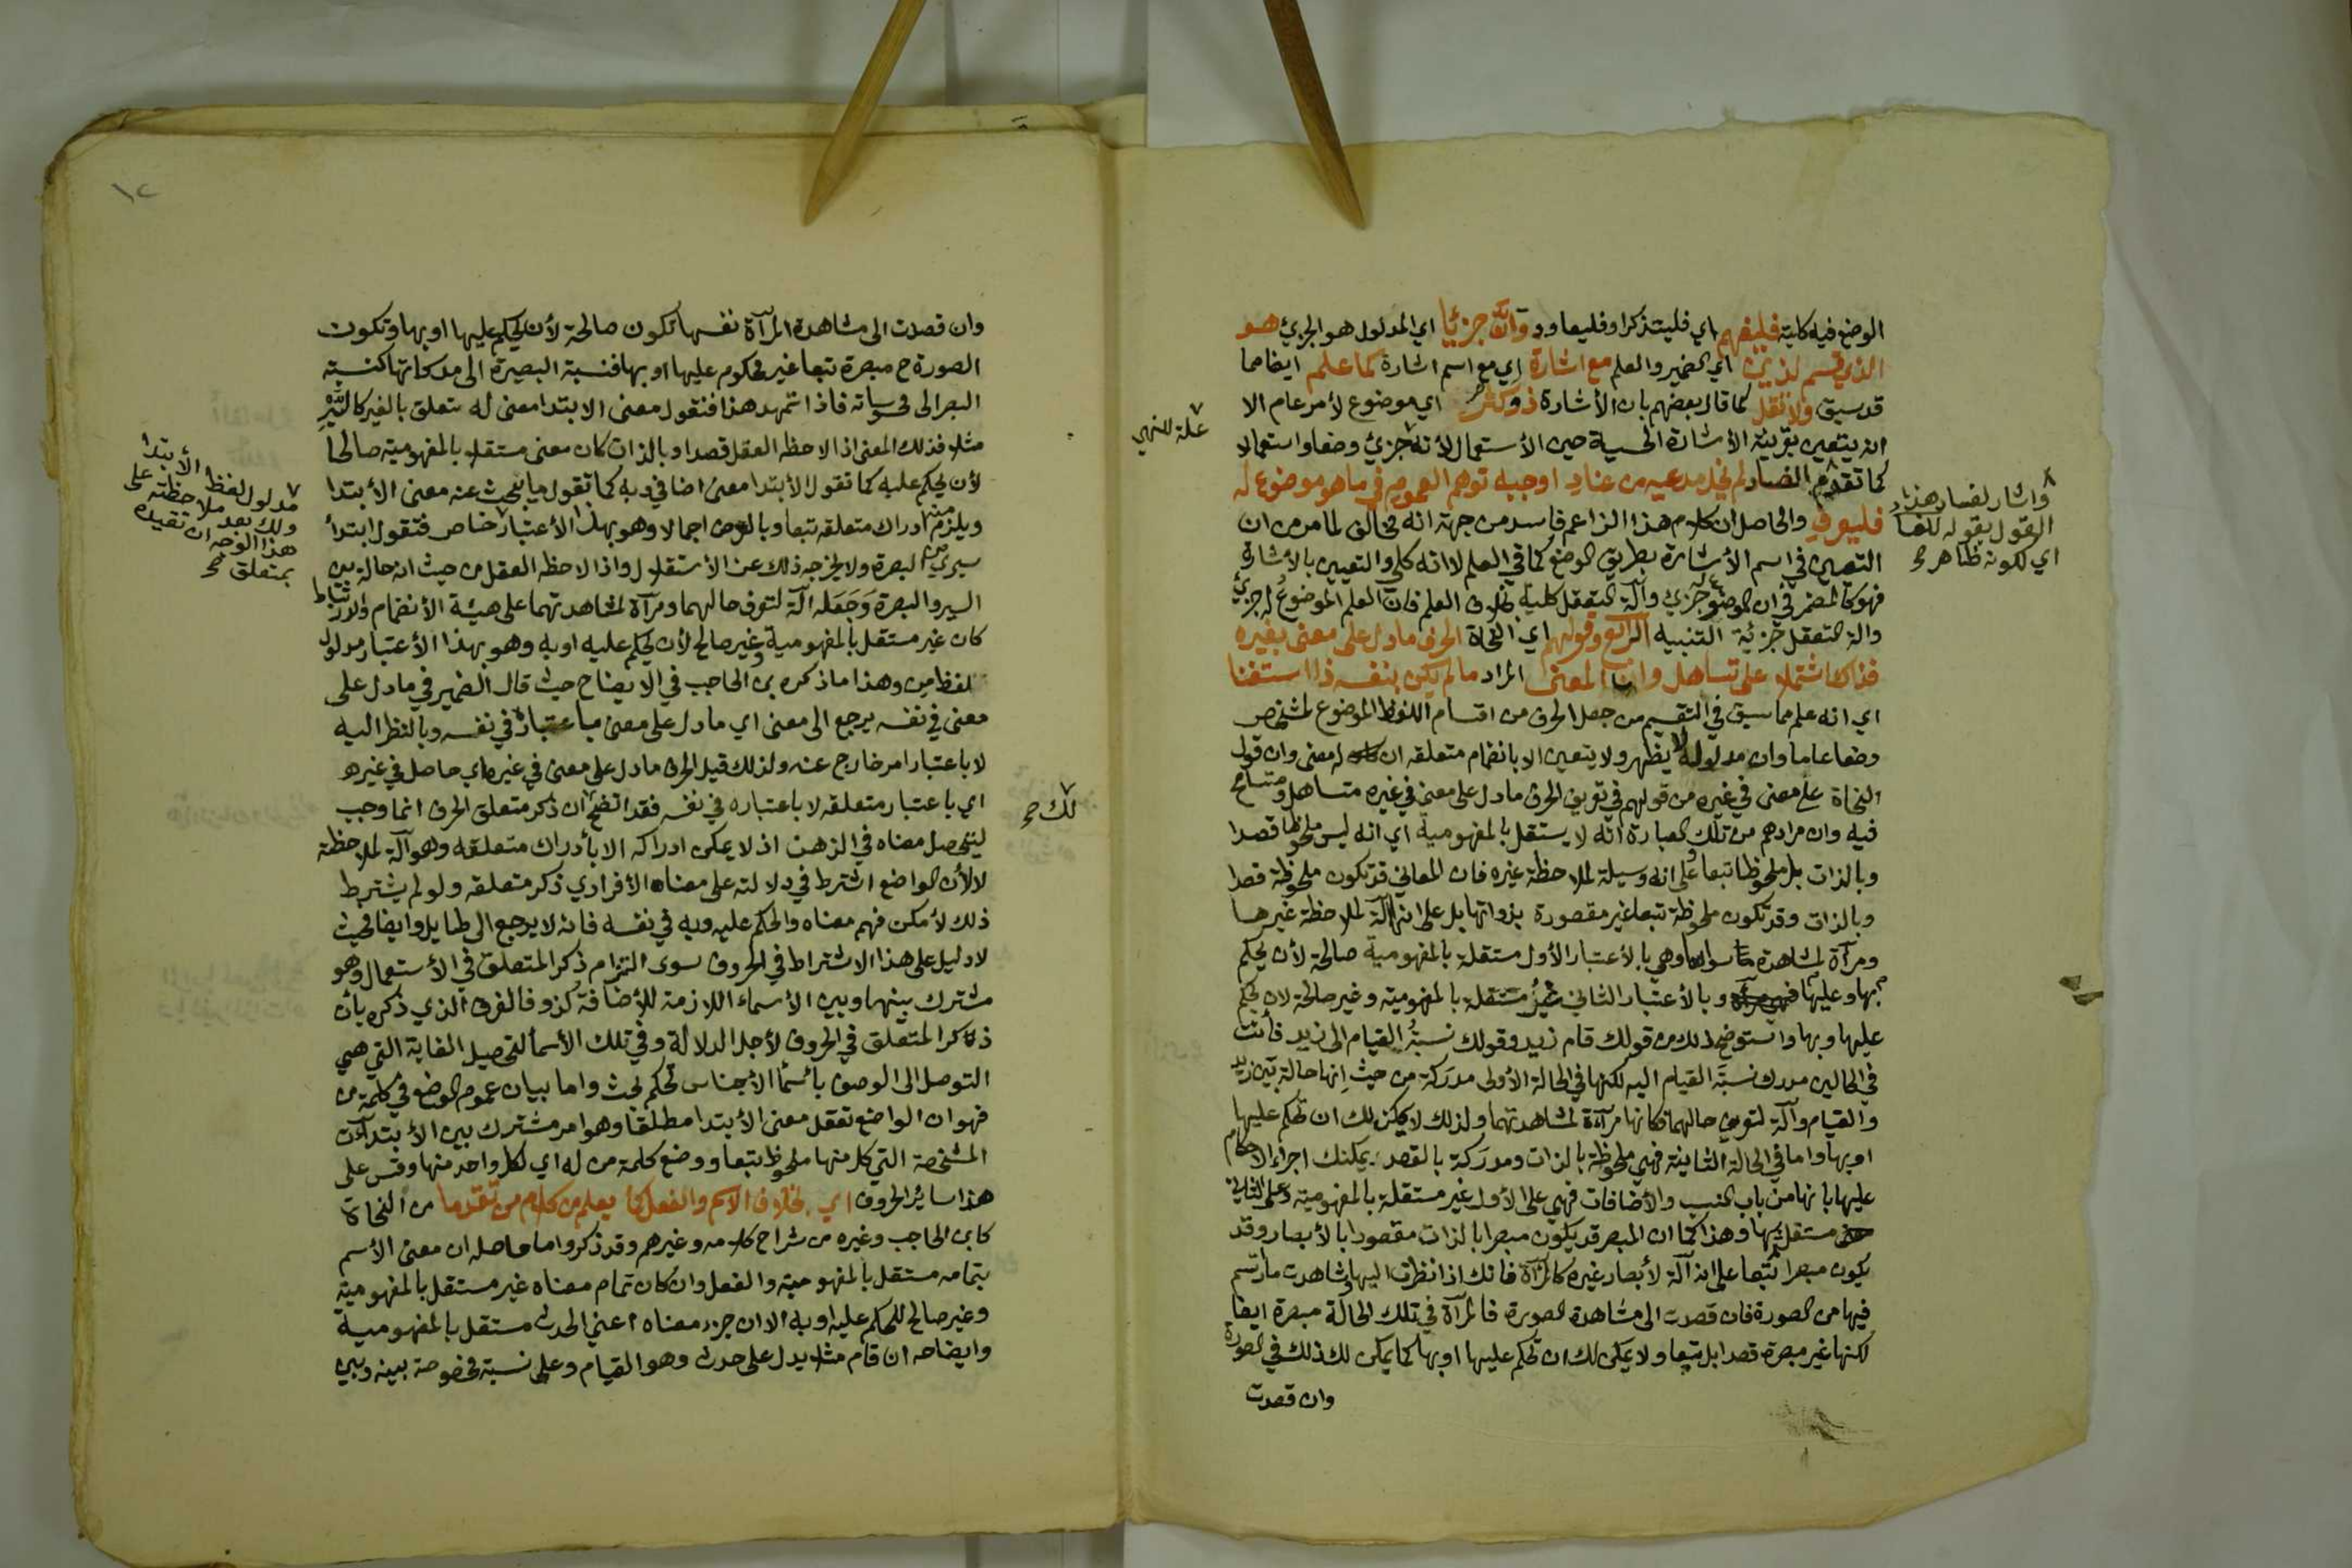 الوضع فيه كلية فليفهم اي فليتذكر او فليعاود وانه جزئيا اي المدلول هو الجزئي هو
الذي قسم لذين اي الضمير والعلم مع اشارة اي مع اسم اشارة كما علم ايضا مما
قد سبق ولا تقل كما قال بعضهم بان الأشارة ذو كثر اي موضوع لأمر عام الا
انه يتعين بقرينة الأشارة الحسية حين الأستعمال لأنه جزئي وضعا واستعمالا
علة للنهي
كما تقدم الفساد لم يخل مدعيه من عناد اوجبه توهم العموم في ما هو موضوع له
فليعرف والحاصل ان كلام هذا الزاعم فاسد من جهة انه مخالف لما مر من ان
واشار لفساد هذا
القول بقوله
اي لكونه ظاهر صح
التعيين في اسم الأشارة بطريق الوضع كما في العلم لا انه كلي والتعيين بالأشارة
فهو كالمضمر في ان الموضوع له جزئي وآلة التعقل كلية بخلاف العلم فان العلم الموضوع له جزئي
والة التعقل جزئية التنبيه الرابع وقولهم اي النحاة الحرف ما دل على معنى بغيره
فذاك اشتملا على تساهل وان المعنى المراد ما لم يكن بنفسه ذا استغنا
اي انه علم مما سبق في التقسيم من جعل الحرف من اقسام اللفظ الموضوع لمشخص
وضعا عاما وان مدلوله لا يظهر ولا يتعين الا بانضمام متعلقه ان له معنى وان قول
النحاة على معنى في غيره من قولهم في تعريف الحرف ما دل على معنى في غيره متساهل ومتسامح
فيه وان مرادهم من تلك العبارة انه لا يستقل بالمفهومية اي انه ليس ملحوظا قصدا
وبالذات بل ملحوظا تبعا وعلى انه وسيلة لملاحظة غيره فان المعاني قد تكون ملحوظة قصدا
وبالذات وقد تكون ملحوظة تبعا غير مقصودة بذواتها بل على انها آلة لملاحظة غيرها
ومرآة لمشاهدة ما سواها وهي بالأعتبار الأول مستقلة بالمفهومية صالحة لأن يحكم
بها وعليها وبالأعتبار الثاني غير مستقلة بالمفهومية وغير صالحة لان يحكم
عليها وبها واستوضح ذلك من قولك قام زيد وقولك نسبة القيام الى زيد فأنت
في الحالين مدرك نسبة القيام اليه لكنها في الحالة الأولى مدركة من حيث انها حالة بين زيد
والقيام وآلة لتعرف حالهما فكانها مرآة لمشاهدتهما ولذلك لا يمكن لك ان تحكم عليها
او بها واما في الحالة الثانية فهي ملحوظة بالذات ومدركة بالقصد يمكنك اجراء الاحكام
عليها بانها من باب النسب والأضافات فهي على الأول غير مستقلة بالمفهومية وعلى الثاني
مستقلة بها وهذا كما ان المبصر قد يكون مبصرا بالذات مقصودا بالأبصار وقد
يكون مبصرا تبعا على انه آلة لأبصار غيره كالمرآة فانك اذا نظرت اليها وشاهدت ما ارتسم
فيها من الصورة فان قصدت الى مشاهدة الصورة فالمرآة في تلك الحالة مبصرة ايضا
لكنها غير مبصرة قصدا بل تبعا ولا يمكن لك ان تحكم عليها او بها كما يمكن لك ذلك في الصورة
وان قصدت
١٢
وان قصدت الى مشاهدة المرآة نفسها تكون صالحة لأن يحكم عليها او بها وتكون
الصورة ح مبصرة تبعا غير محكوم عليها او بها فنسبة البصيرة الى مدركاتها كنسبة
البصر الى محسوساته فاذا تمهد هذا فنقول معنى الابتدا معنى له تعلق بالغير كالسير
مثلا فذلك المعنى اذا لاحظه العقل قصدا وبالذات كان معنى مستقلا بالمفهومية صالحا
لأن يحكم عليه كما تقول الأبتدا معنى اضافي وبه كما تقول ما يبحث عنه معنى الأبتدا
ويلزم منه ادراك متعلقه تبعا وبالعرض اجمالا وهو بهذا الأعتبار خاص فتقول ابتدأ
مدلول لفظ الأبتدا
ولك بعد ملاحظته على
هذا الوجه ان تقيده
بمتعلق صح
سيري من البصرة ولا يخرجه ذلك عن الأستقلال واذا لاحظه العقل من حيث انه حالة بين
السير والبصرة وجعله آلة لتعرف حالهما ومرآة لمشاهدتهما على هيئة الأنضمام والارتباط
كان غير مستقل بالمفهومية وغير صالح لأن يحكم عليه او به وهو بهذا الأعتبار مدلول
لفظ من وهذا ما ذكره بن الحاجب في الايضاح حيث قال الضمير في ما دل على
معنى في نفسه يرجع الى معنى اي ما دل على معنى باعتباره في نفسه وبالنظر اليه
لا باعتبار امر خارج عنه ولذلك قيل الحرف ما دل على معنى في غيره اي حاصل في غيره
اي باعتبار متعلقه لا باعتباره في نفسه فقد اتضح ان ذكر متعلق الحرف انما وجب
لك صح
ليتحصل معناه في الذهن اذ لا يمكن ادراكه الا بأدراك متعلقه وهو آلة لملاحظة
لا لأن الواضع اشترط في دلالته على معناه الأفرادي ذكر متعلقه ولو لم يشترط
ذلك لأمكن فهم معناه والحكم عليه وبه في نفسه فانه لا يرجع الى طايل وايضا فحيث
لا دليل على هذا الاشتراط في الحروف سوى التزام ذكر المتعلق في الأستعمال وهو
مشترك بينها وبين الأسماء اللازمة للأضافة كذو فالفرق الذي ذكره بأن
ذكر المتعلق في الحروف لأجل الدلالة وفي تلك الأسما لتحصيل الغاية التي هي
التوصل الى الوصف باسما الأجناس تحكم بحث واما بيان عموم الوضع في كلمة من
فهو ان الواضع تعقل معنى الأبتدا مطلقا وهو امر مشترك بين الأبتداآت
المشخصة التي كل منها ملحوظ تبعا ووضع كلمة من له اي لكل واحد منها وقس على
هذا سائر الحروف اي بخلاف الاسم والفعل كما يعلم من كلام من تقدما من النحاة
كابن الحاجب وغيره من شراح كلامه وغيرهم وقد ذكروا ما حاصله ان معنى الأسم
بتمامه مستقل بالمفهومية والفعل وان كان تمام معناه غير مستقل بالمفهومية
وغير صالح للحكم عليه او به الا ان جزء معناه اعني الحدث مستقل بالمفهومية
وايضاحه ان قام مثلا يدل على حدث وهو القيام وعلى نسبة مخصوصة بينه وبين